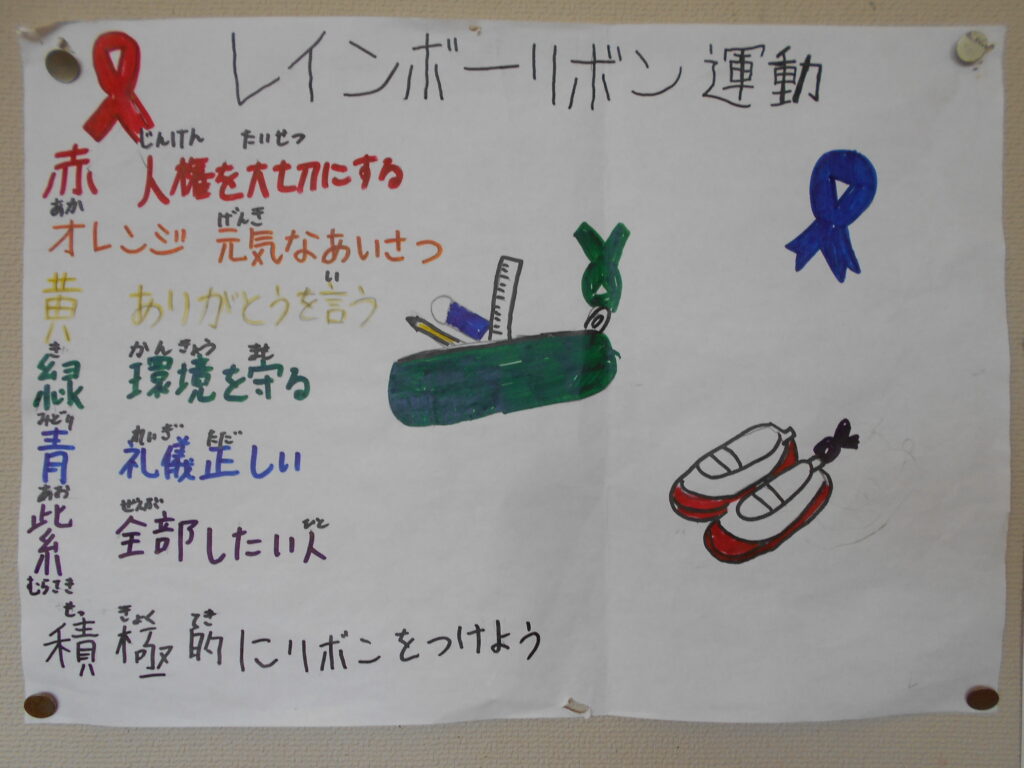 レインボーリボン運動
じんけん たいせつ
赤 人権を大切にする
あか
げんき
オレンジ 元気なあいさつ
い
黄 ありがとうを言う
き
かんきょう まも
緑 環境を守る
みどり
れいぎ ただ
青 礼儀正しい
あお
ぜんぶ ひと
紫 全部したい人
むらさき
せっ きょく てき
積極的にリボンをつけよう